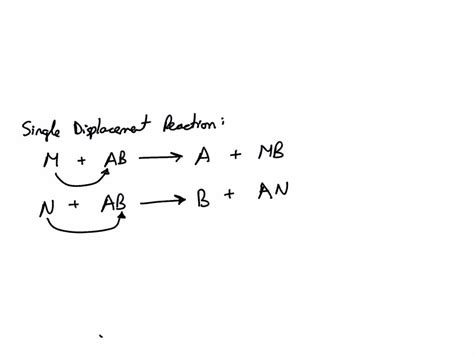 Single Displacement Reaction:
M + AB → A + MB
N + AB → B + AN